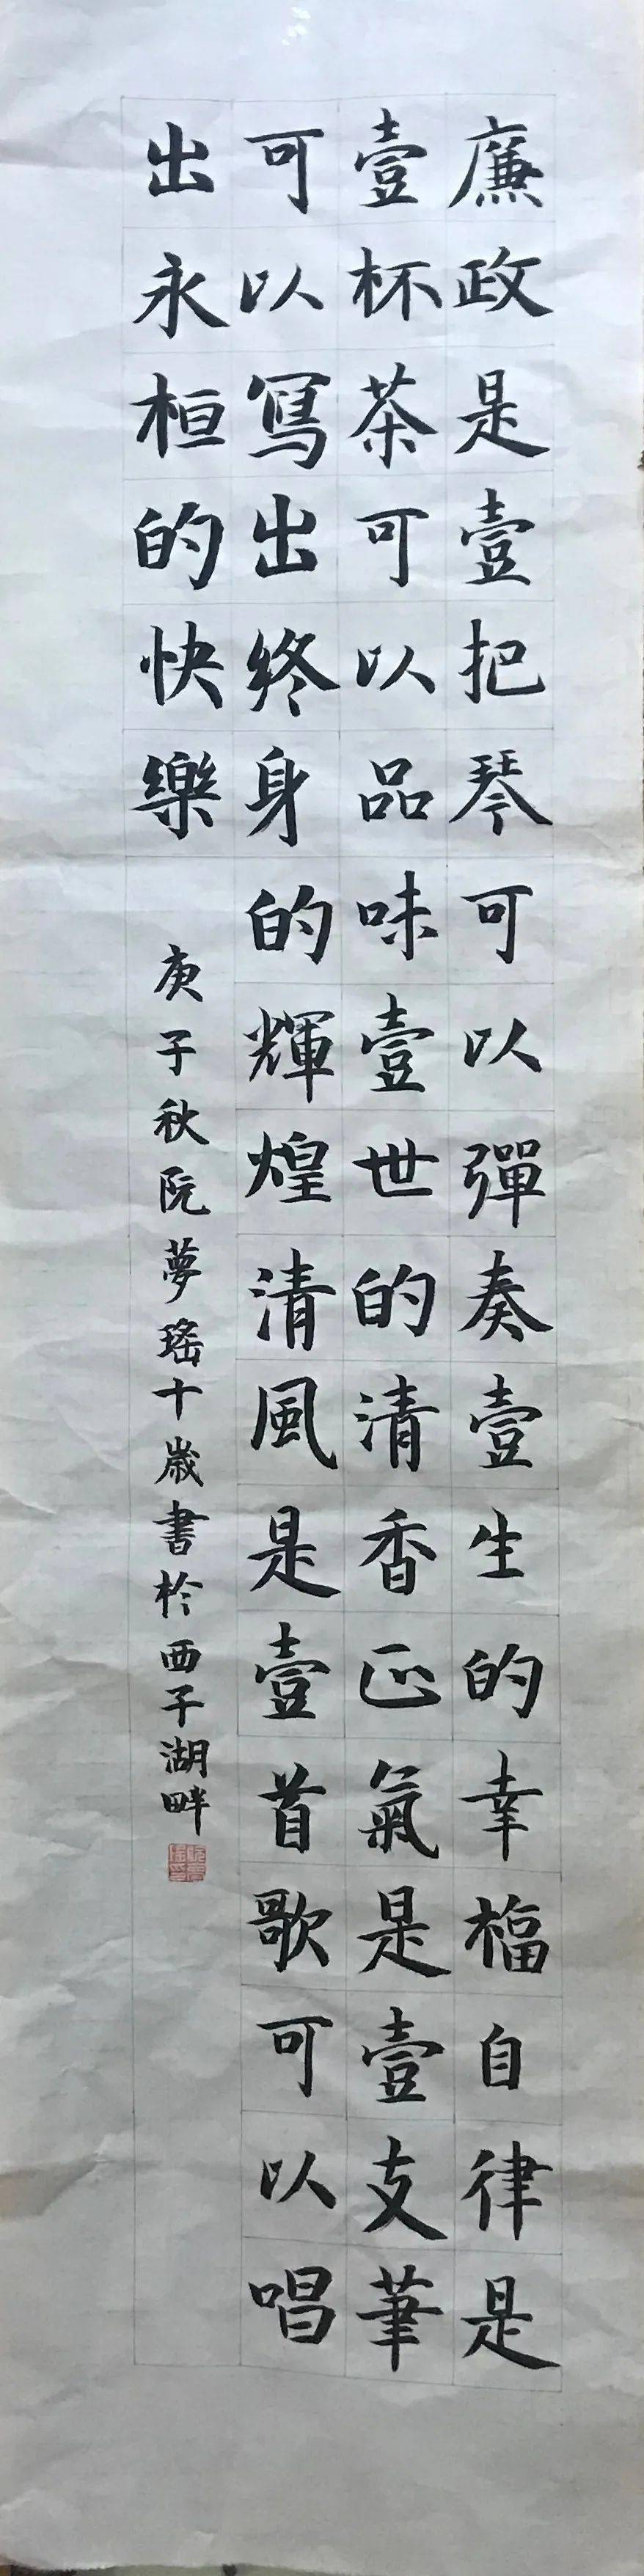 廉政是壹把琴可以彈奏壹生的幸福自律是
壹杯茶可以品味壹世的清香正氣是壹支筆
可以寫出終身的輝煌清風是壹首歌可以唱
出永桓的快樂
庚子秋阮夢瑤十歲書於西子湖畔